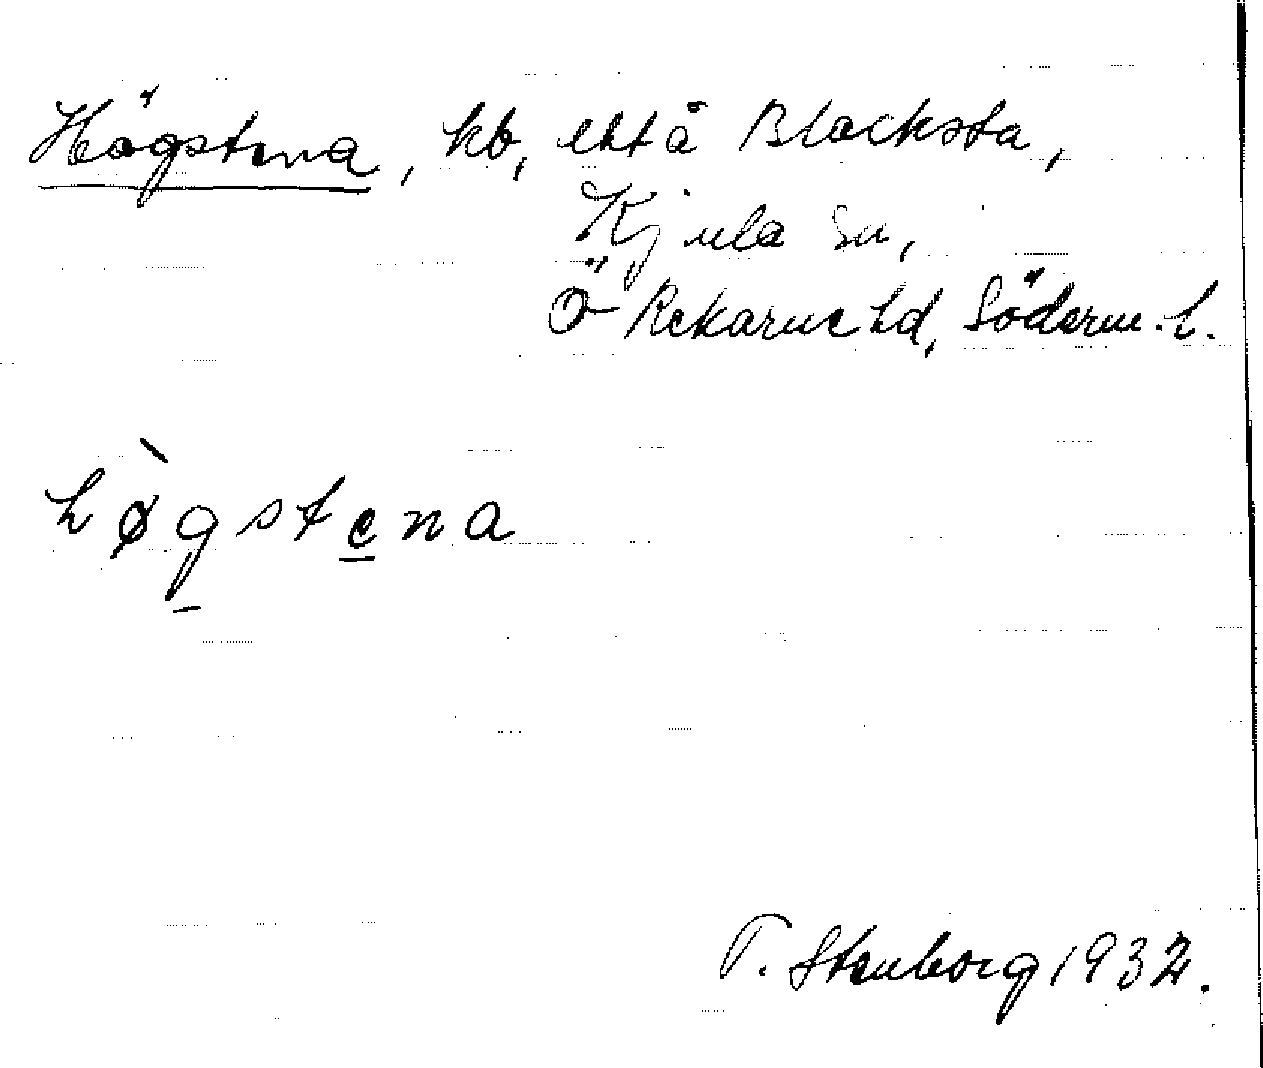 Högstena, kb, ehtå Blacksta,
Kjula sn,
Ö Rekarne hd, Söderm. l.
hø̀gstena
T. Stenborg 1932.